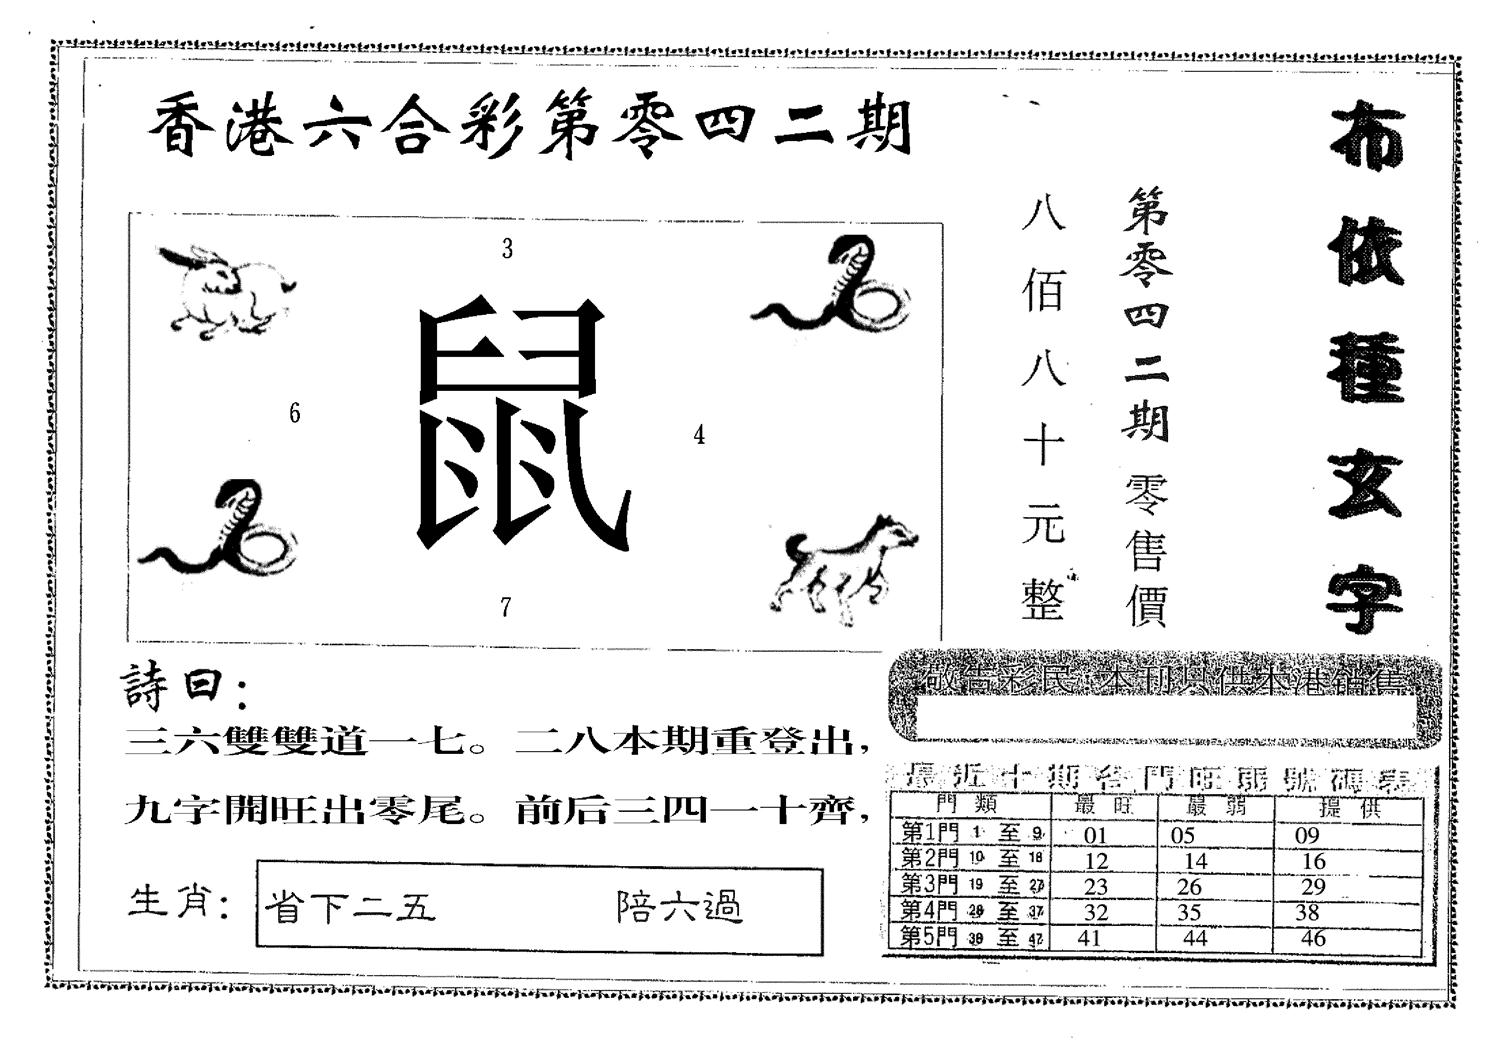 香港六合彩第零四二期
布依種玄字
第零四二期零售價
八佰八十元整
3
鼠
6
4
7
詩曰：
三六雙雙道一七。二八本期重登出，
九字開旺出零尾。前后三四一十齊，
生肖：省下二五 陪六過
敬告彩民：本刊只供本港銷售
最近十期各門旺弱號碼表
門類 最旺 最弱 提供
第1門 1 至 9 01 05 09
第2門 10 至 18 12 14 16
第3門 19 至 27 23 26 29
第4門 28 至 37 32 35 38
第5門 38 至 47 41 44 46